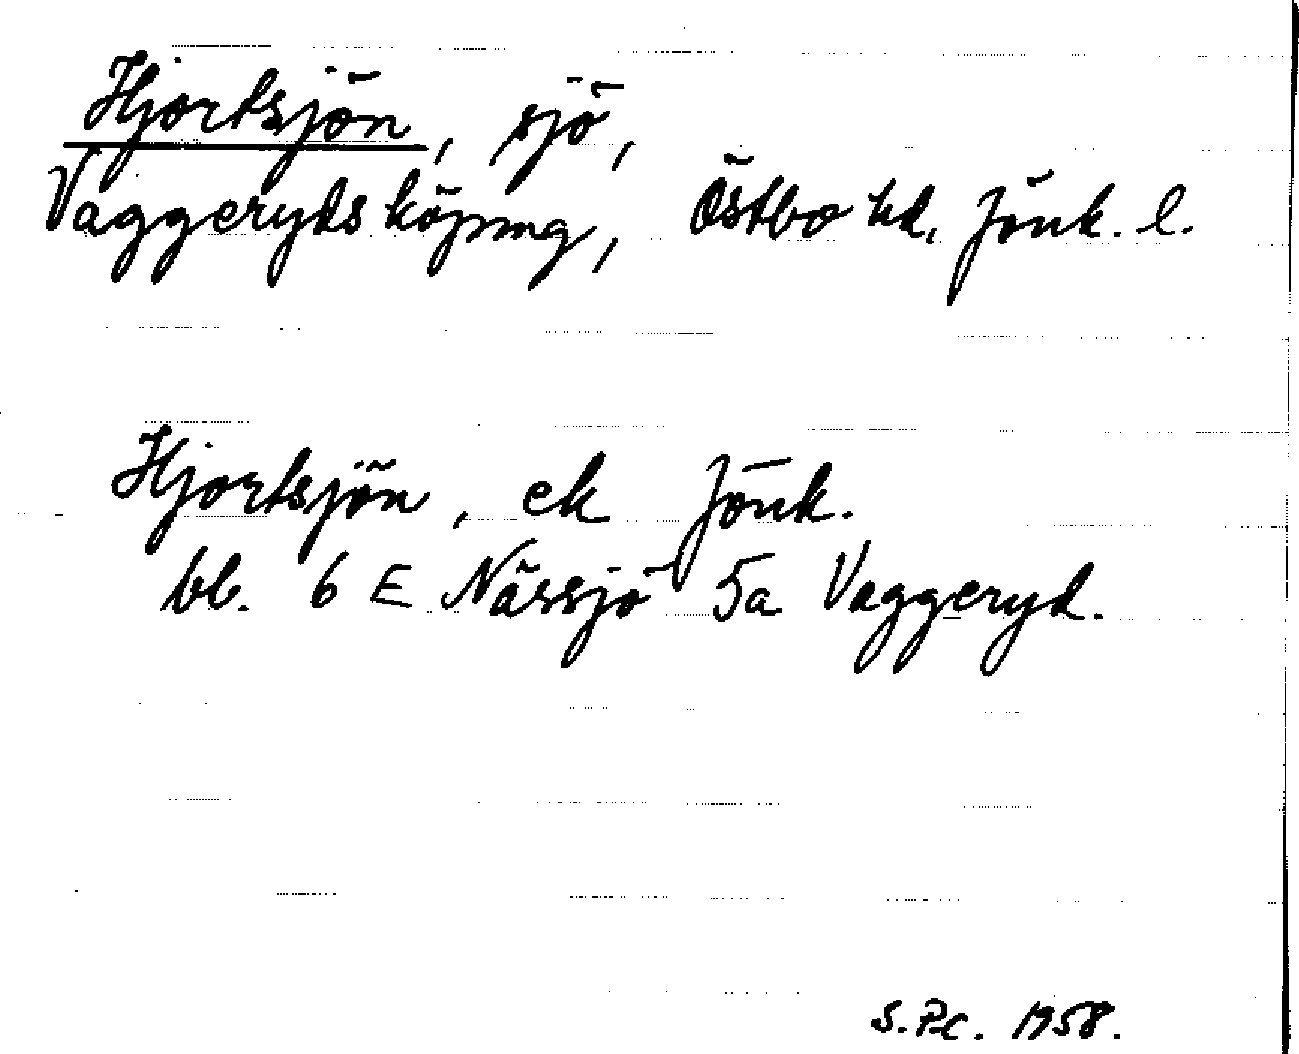 Hjortsjön, sjö,
Vaggeryds köping, Östbo hd, Jönk. l.
Hjortsjön, ek Jönk.
bl. 6 E Nässjö 5a Vaggeryd.
S.P-c. 1958.